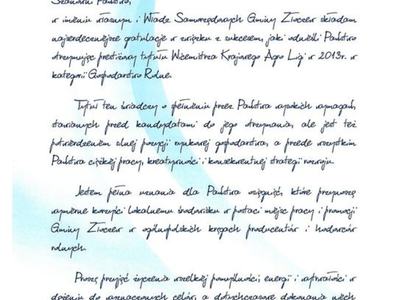 Szanowni Państwo,
w imieniu własnym i Władz Samorządowych Gminy Złoczew składam
najserdeczniejsze gratulacje w związku z sukcesem, jaki odnieśli Państwo
otrzymując prestiżowy tytuł Wicemistrza Krajowego Agro Ligi w 2013r. w
kategorii Gospodarstwo Rolne.
Tytuł ten świadczy o spełnieniu przez Państwa wysokich wymagań,
stawianych przed kandydatami do jego otrzymania, ale jest też
potwierdzeniem silnej pozycji rynkowej gospodarstwa, a przede wszystkim
Państwa ciężkiej pracy, kreatywności i konsekwentnej strategii rozwoju.
Jestem pełna uznania dla Państwa osiągnięć, które przynoszą
wymierne korzyści lokalnemu środowisku w postaci miejsc pracy i promocji
Gminy Złoczew w ogólnopolskich kręgach producentów i hodowców
rolnych.
Proszę przyjąć życzenia wszelkiej pomyślności, energii i wytrwałości w
dążeniu do wyznaczonych celów, a dotychczasowe dokonania niech